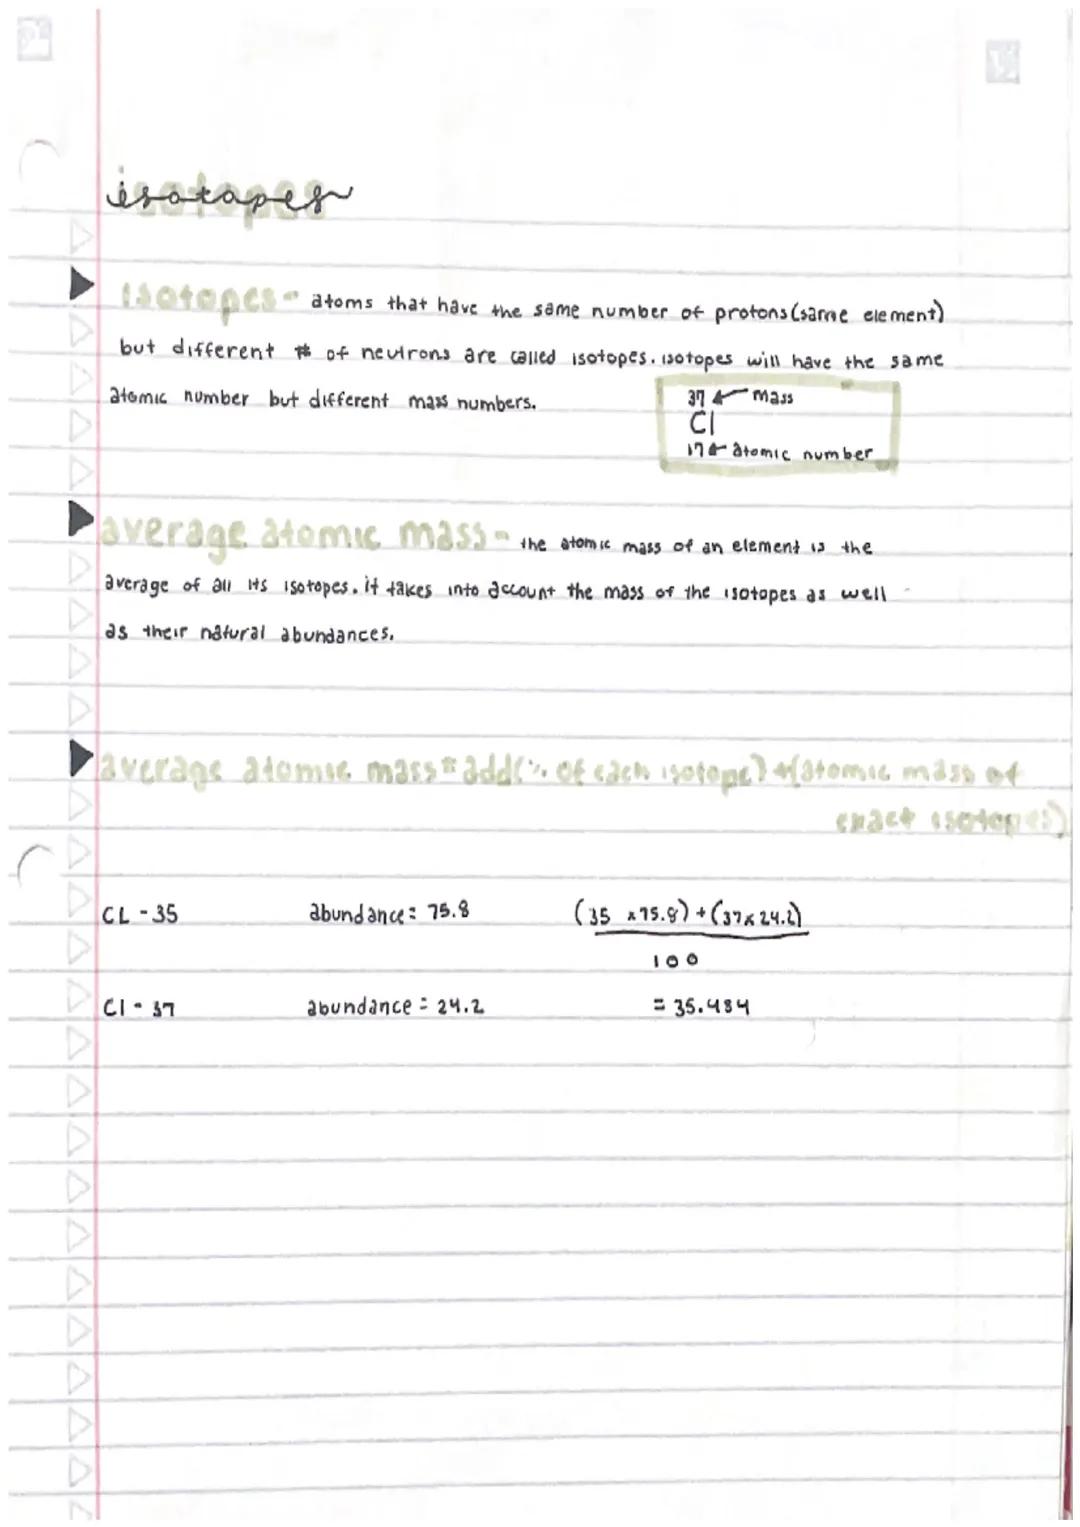 isotopes
isotopes - atoms that have the same number of protons (same element)
but different # of neutrons are called isotopes. isotopes will have the same
atomic number but different mass numbers.
37 ← mass
Cl
17 ← atomic number
average atomic mass - the atomic mass of an element is the
average of all its isotopes. it takes into account the mass of the isotopes as well
as their natural abundances.
average atomic mass = add(% of each isotope) + (atomic mass of
exact isotopes)
CL - 35 abundance: 75.8 (35 x 75.8) + (37 x 24.2)
100
Cl - 37 abundance = 24.2 = 35.484